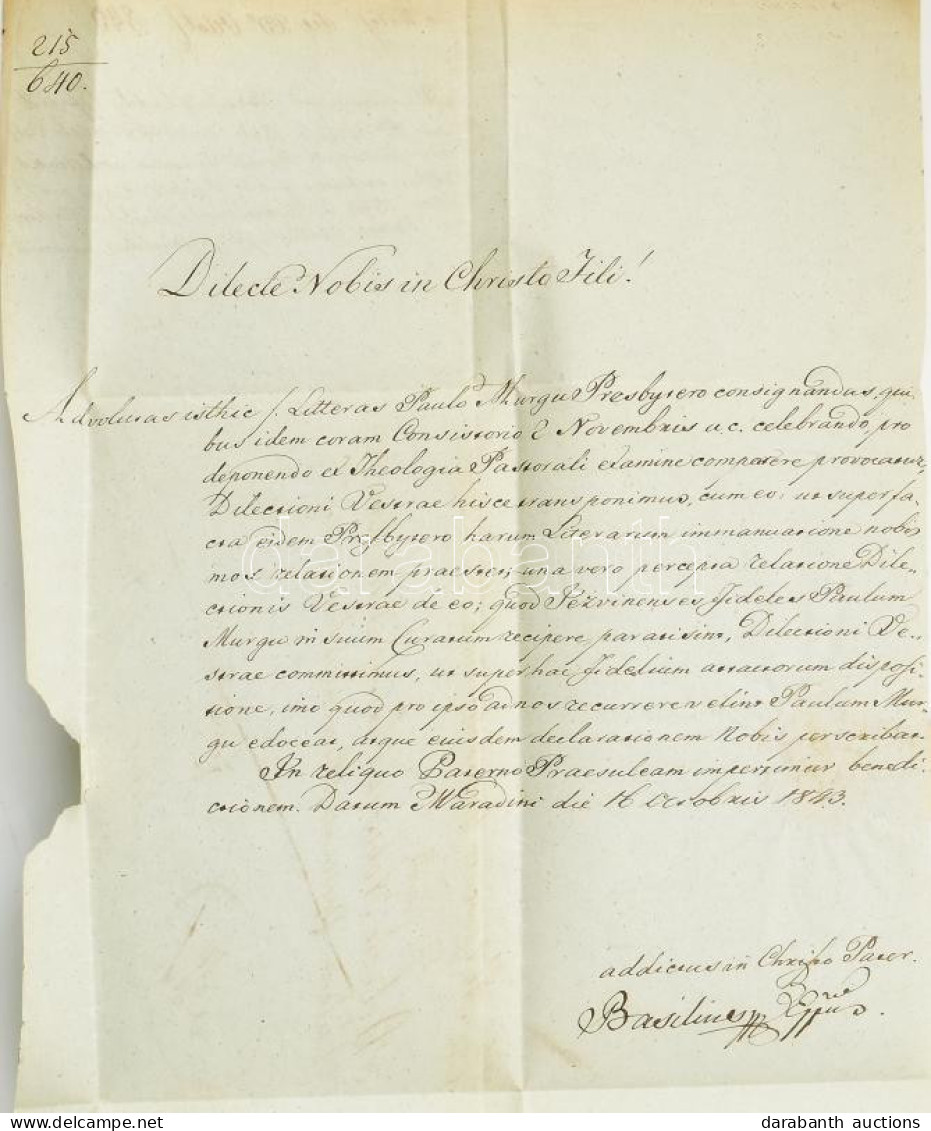 215
640.
Dilecte Nobis in Christo Fili!
Advolutas isthic /. Litteras Paulo Murgu Presbytero consignandas, qui-
bus idem coram Consistorio 2 Novembris u.c. celebrando, pro
deponendo ex Theologia Pastorali examine comparere provocatur,
Dilectioni Vestrae hisce transponimus, cum eo: ut super fa-
cta eidem Presbytero harum Literarum immanuatione nobis
mox relationem praestet; una vero percepta relatione Dile-
ctionis Vestrae de eo; quod Fideles Paulum
Murgu in suum Curatum recipere parati sint, Dilectioni Ve-
strae committimus, ut super hac Fidelium attactorum disposi-
tione, imo quod pro ipso ad nos recurrere velint Paulum Mur-
gu edoceat, atque eiusdem declarationem Nobis perscribat.
In reliquo Paterno Praesuleam impertimur benedi-
ctionem. Datum M.Varadini die 16 Octobris 1843.
addictus in Christo Pater.
Basilius Eppus.
darabanth
darabanth auctions